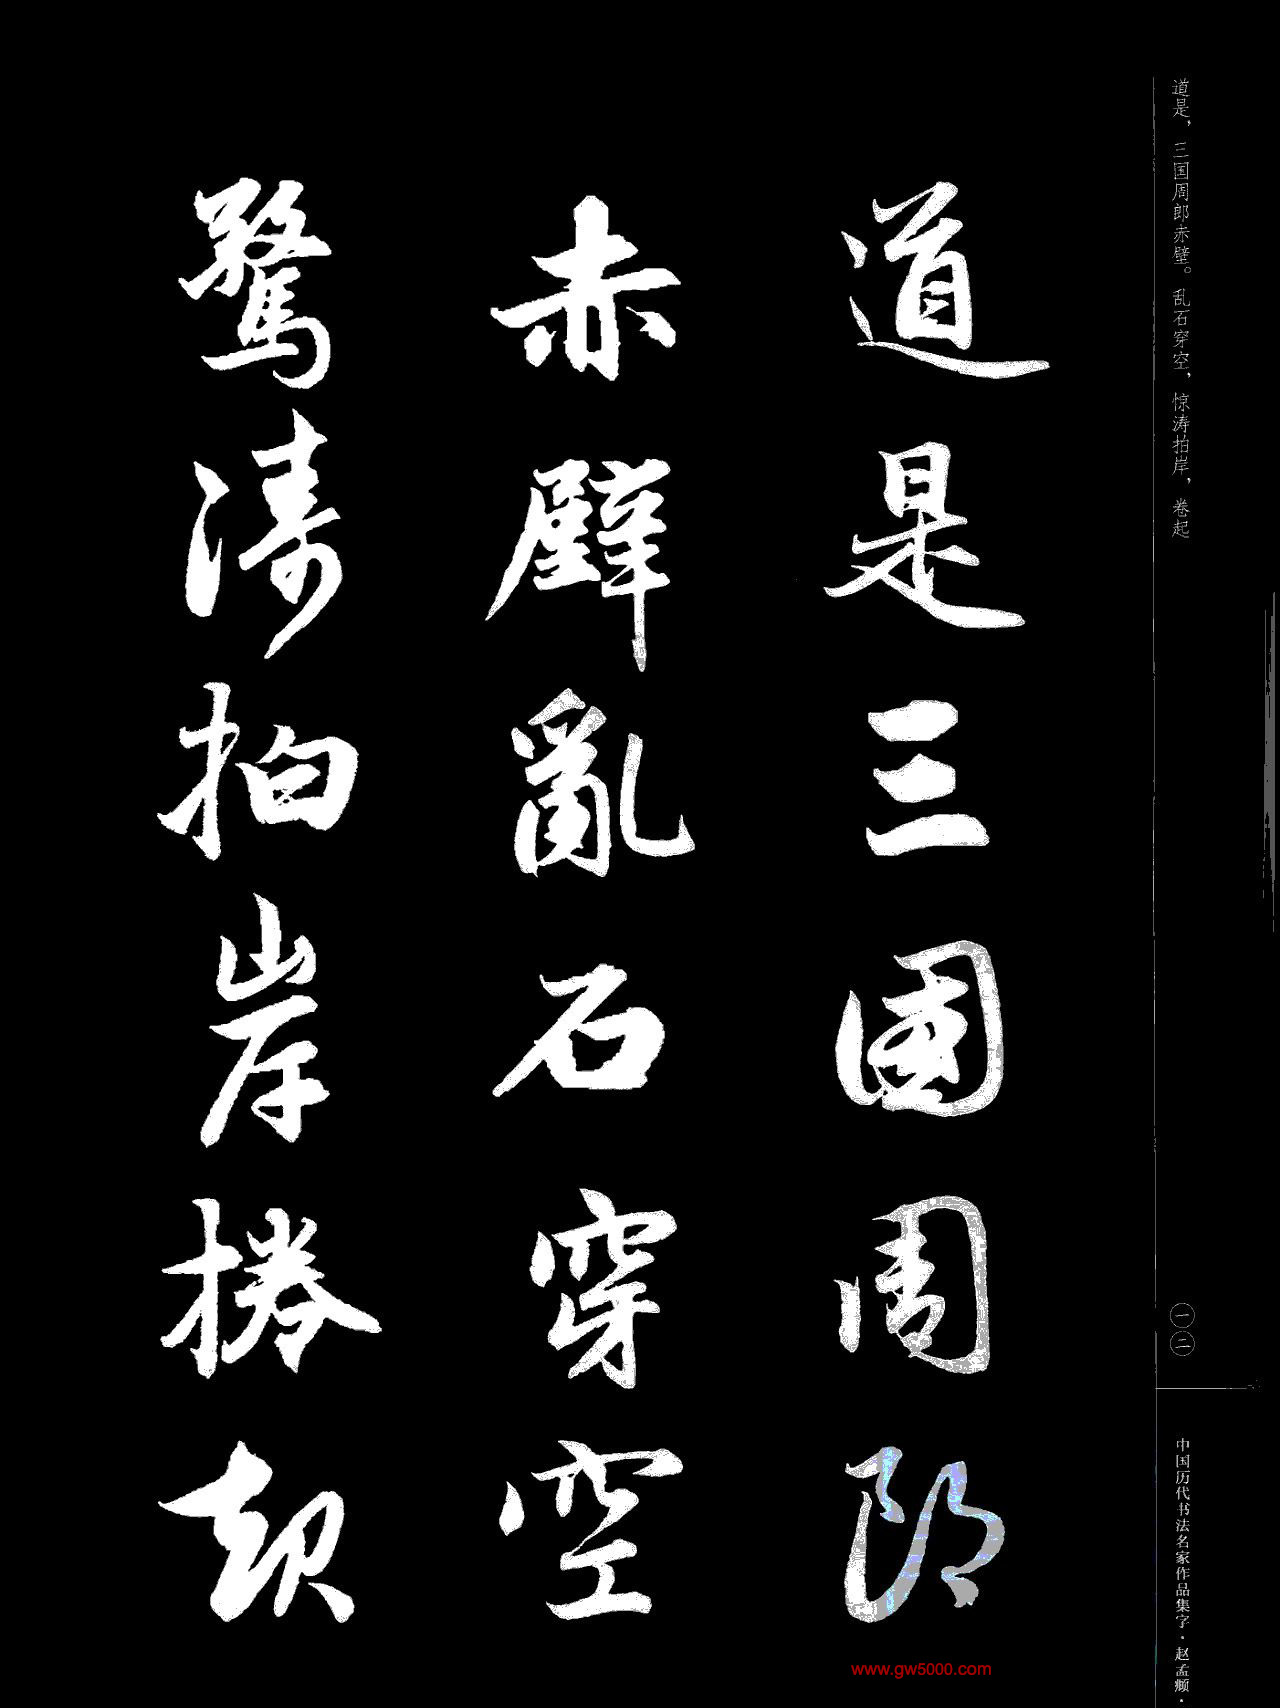 道是，三国周郎赤壁。乱石穿空，惊涛拍岸，卷起
一二
中国历代书法名家作品集字·赵孟頫·
道是三國周郎
赤壁亂石穿空
驚濤拍岸捲起
www.gw5000.com